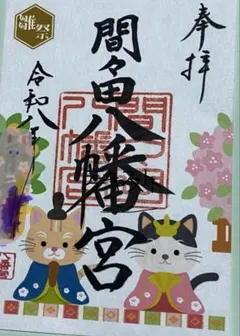 奉拝
雛祭
間々田八幡宮
令和八年